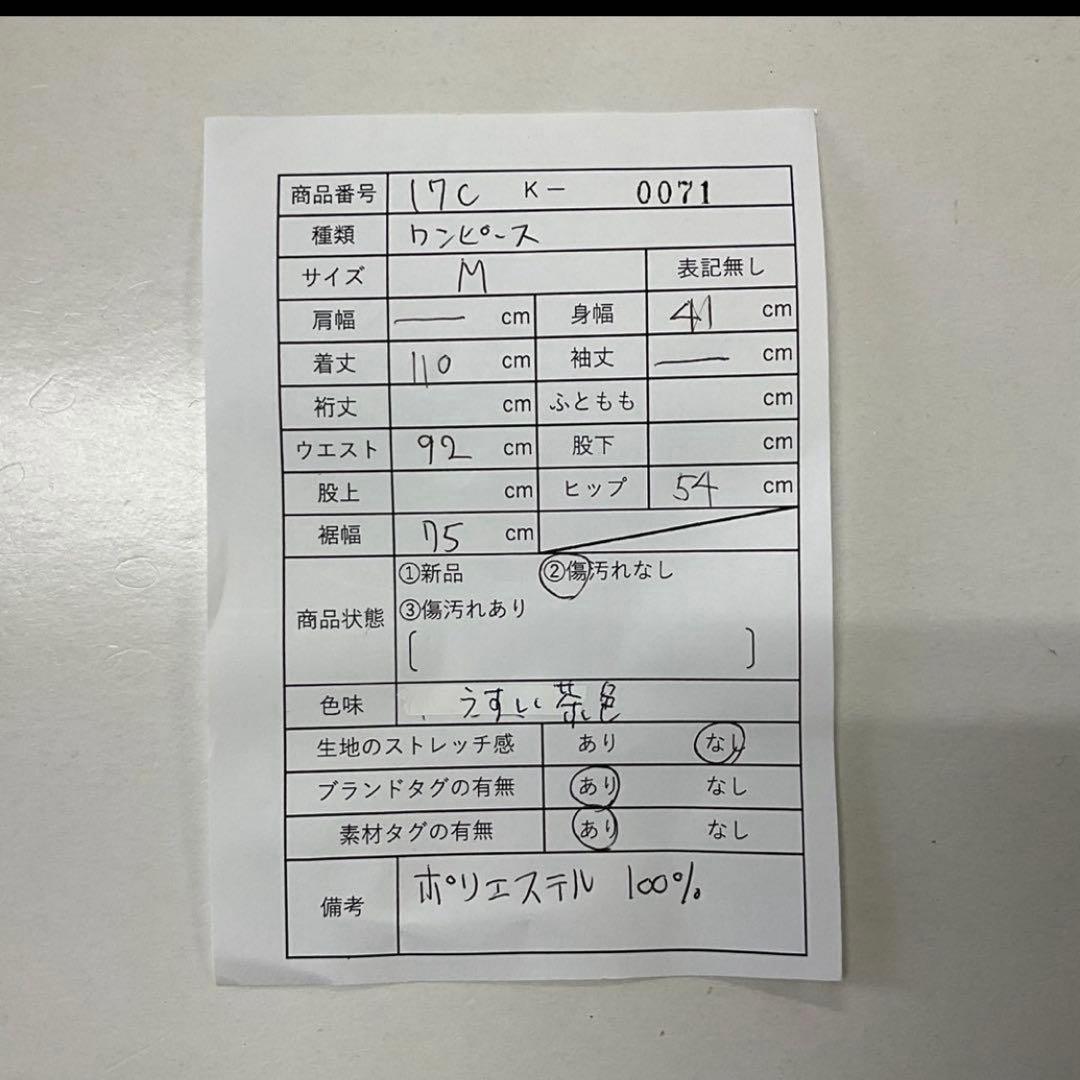 商品番号 17C K- 0071
種類 ワンピース
サイズ M 表記無し
肩幅 — cm 身幅 41 cm
着丈 110 cm 袖丈 — cm
裄丈 cm ふともも cm
ウエスト 92 cm 股下 cm
股上 cm ヒップ 54 cm
裾幅 75 cm
商品状態 ①新品 ②傷汚れなし
③傷汚れあり
[ ]
色味 うすい茶色
生地のストレッチ感 あり なし
ブランドタグの有無 あり なし
素材タグの有無 あり なし
備考 ポリエステル 100%